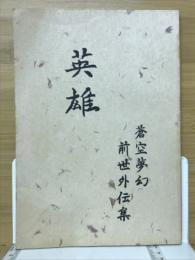 英雄
蒼空夢幻
前世外伝集